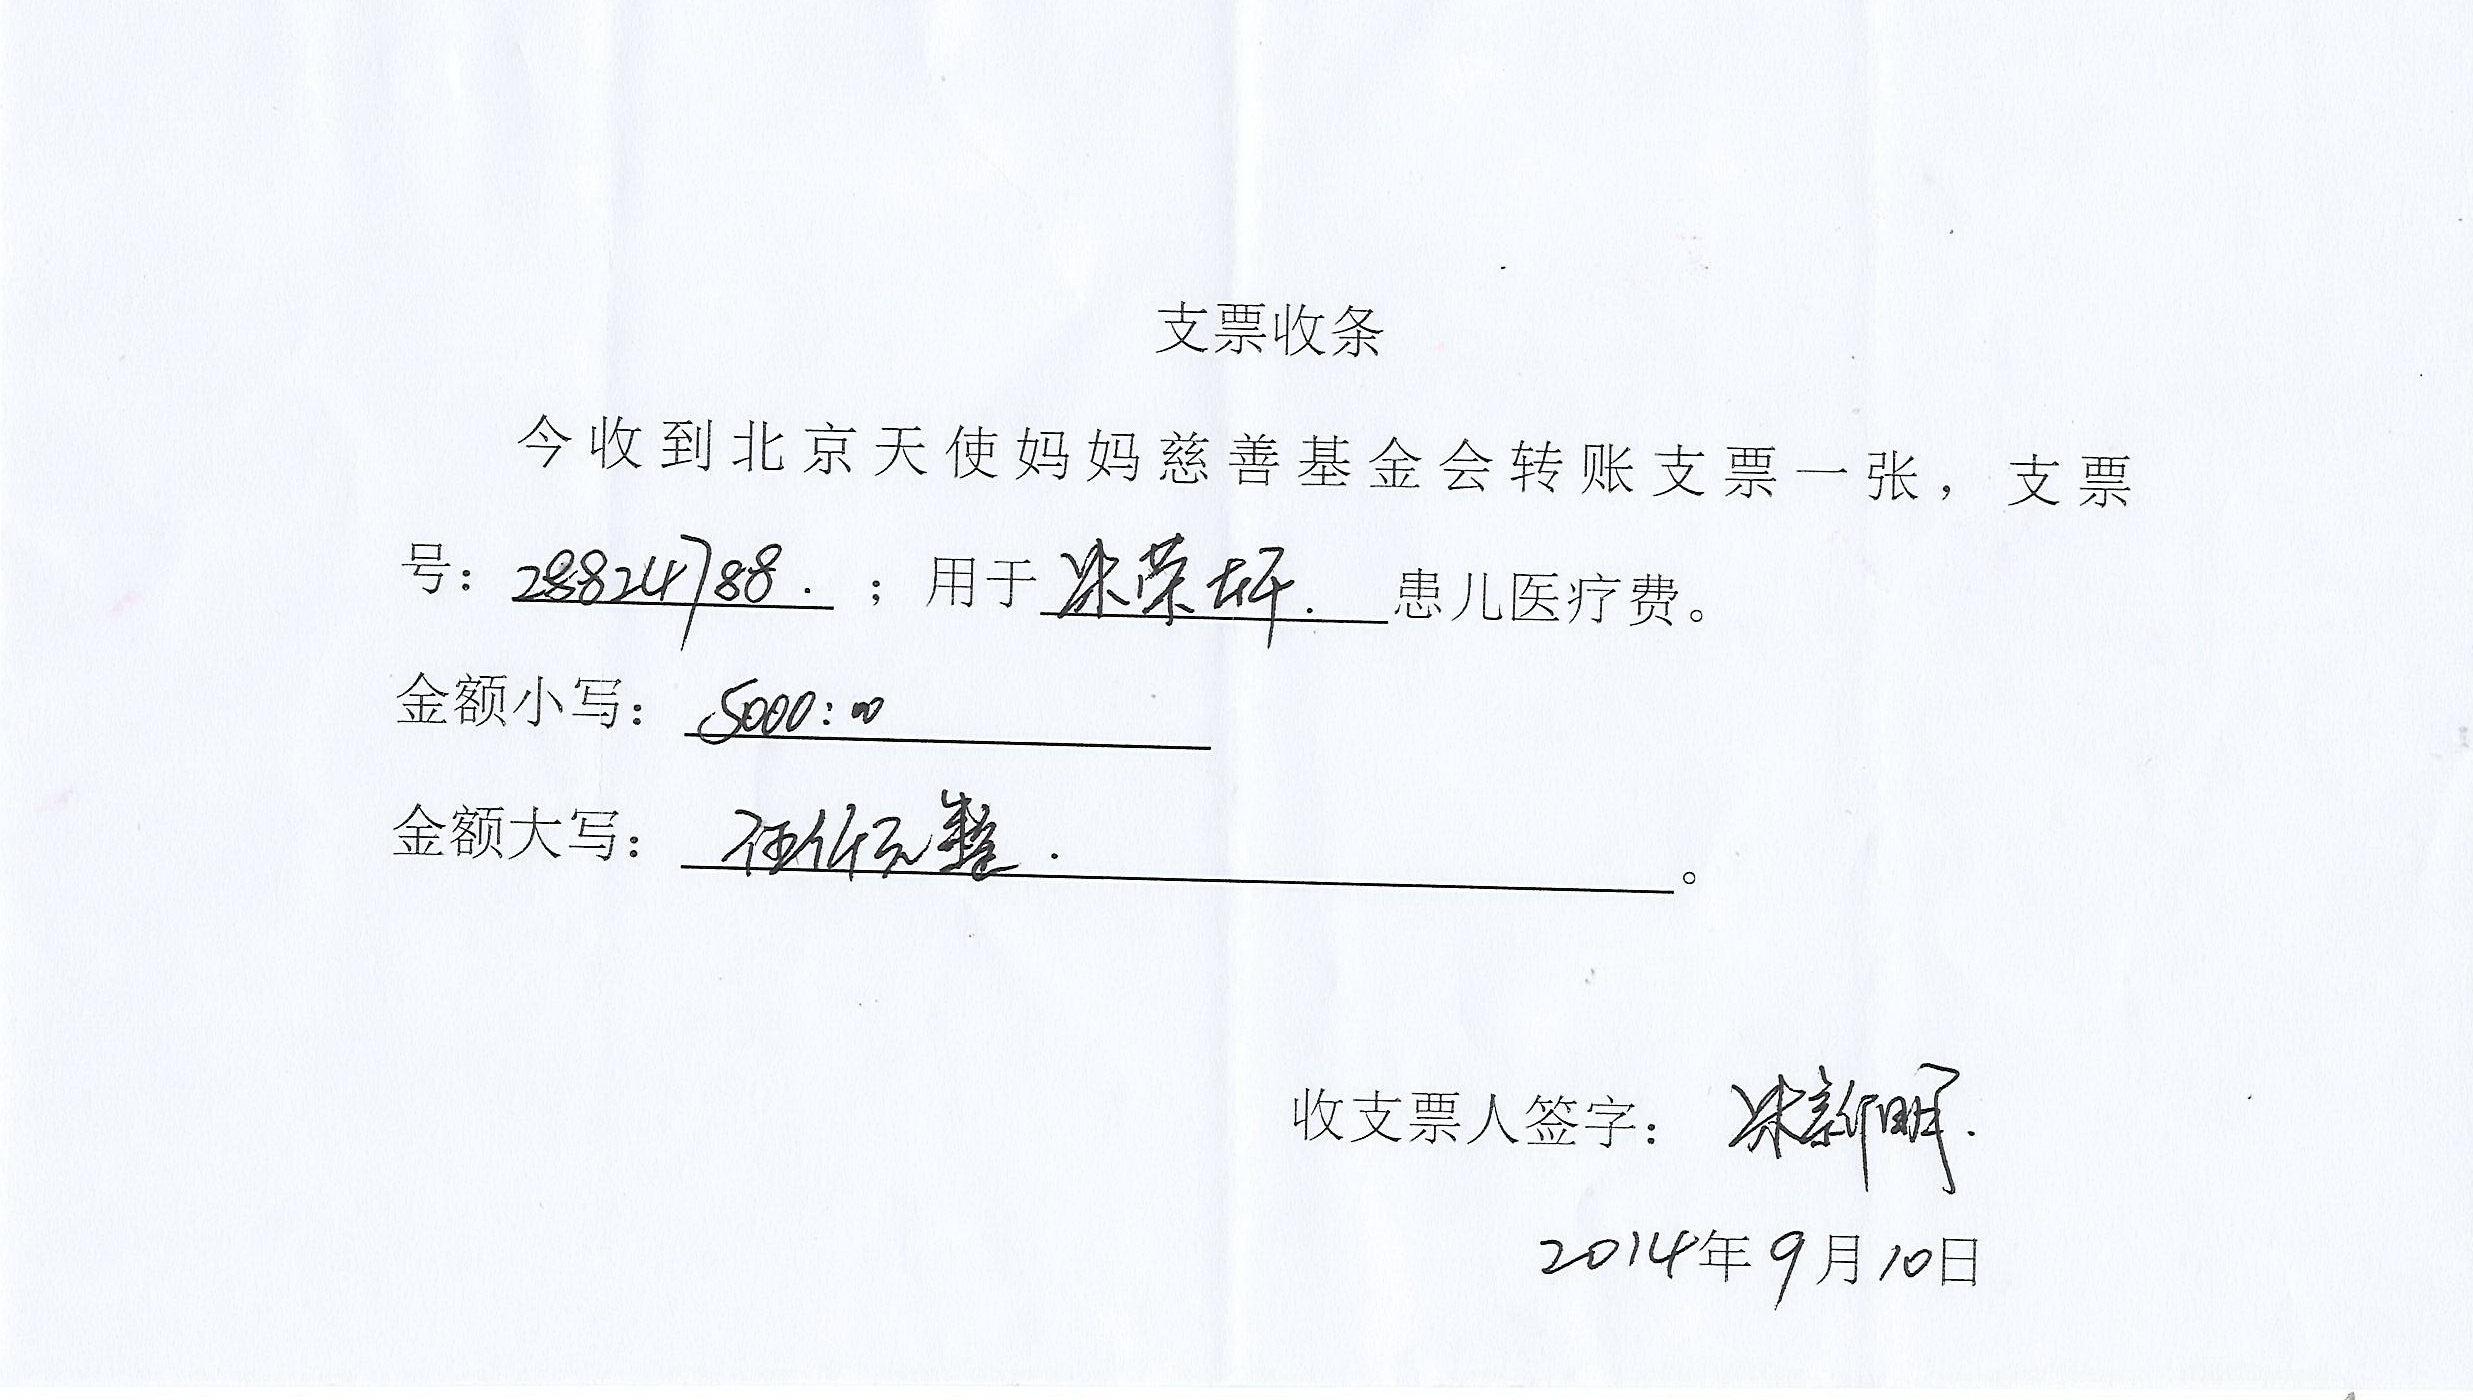 支票收条
今收到北京天使妈妈慈善基金会转账支票一张，支票
号：28824788. ；用于 患儿医疗费。
金额小写：5000:00
金额大写：伍仟元整.。
收支票人签字：
2014年9月10日